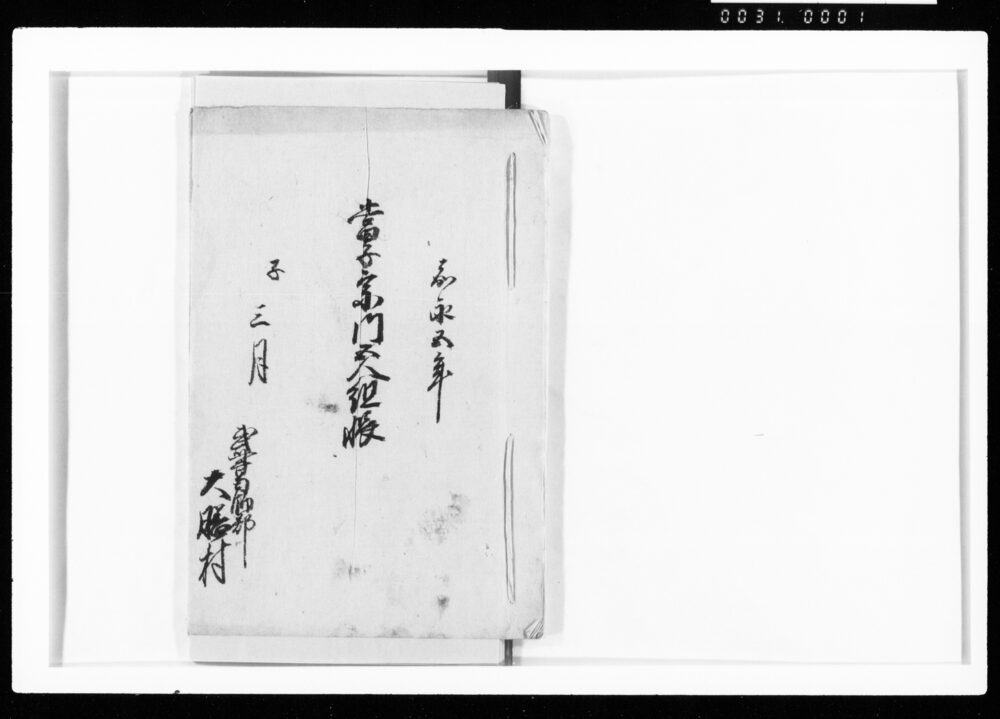 0031.0001
嘉永五年
當子宗門五人組帳
子
三月
大膳村